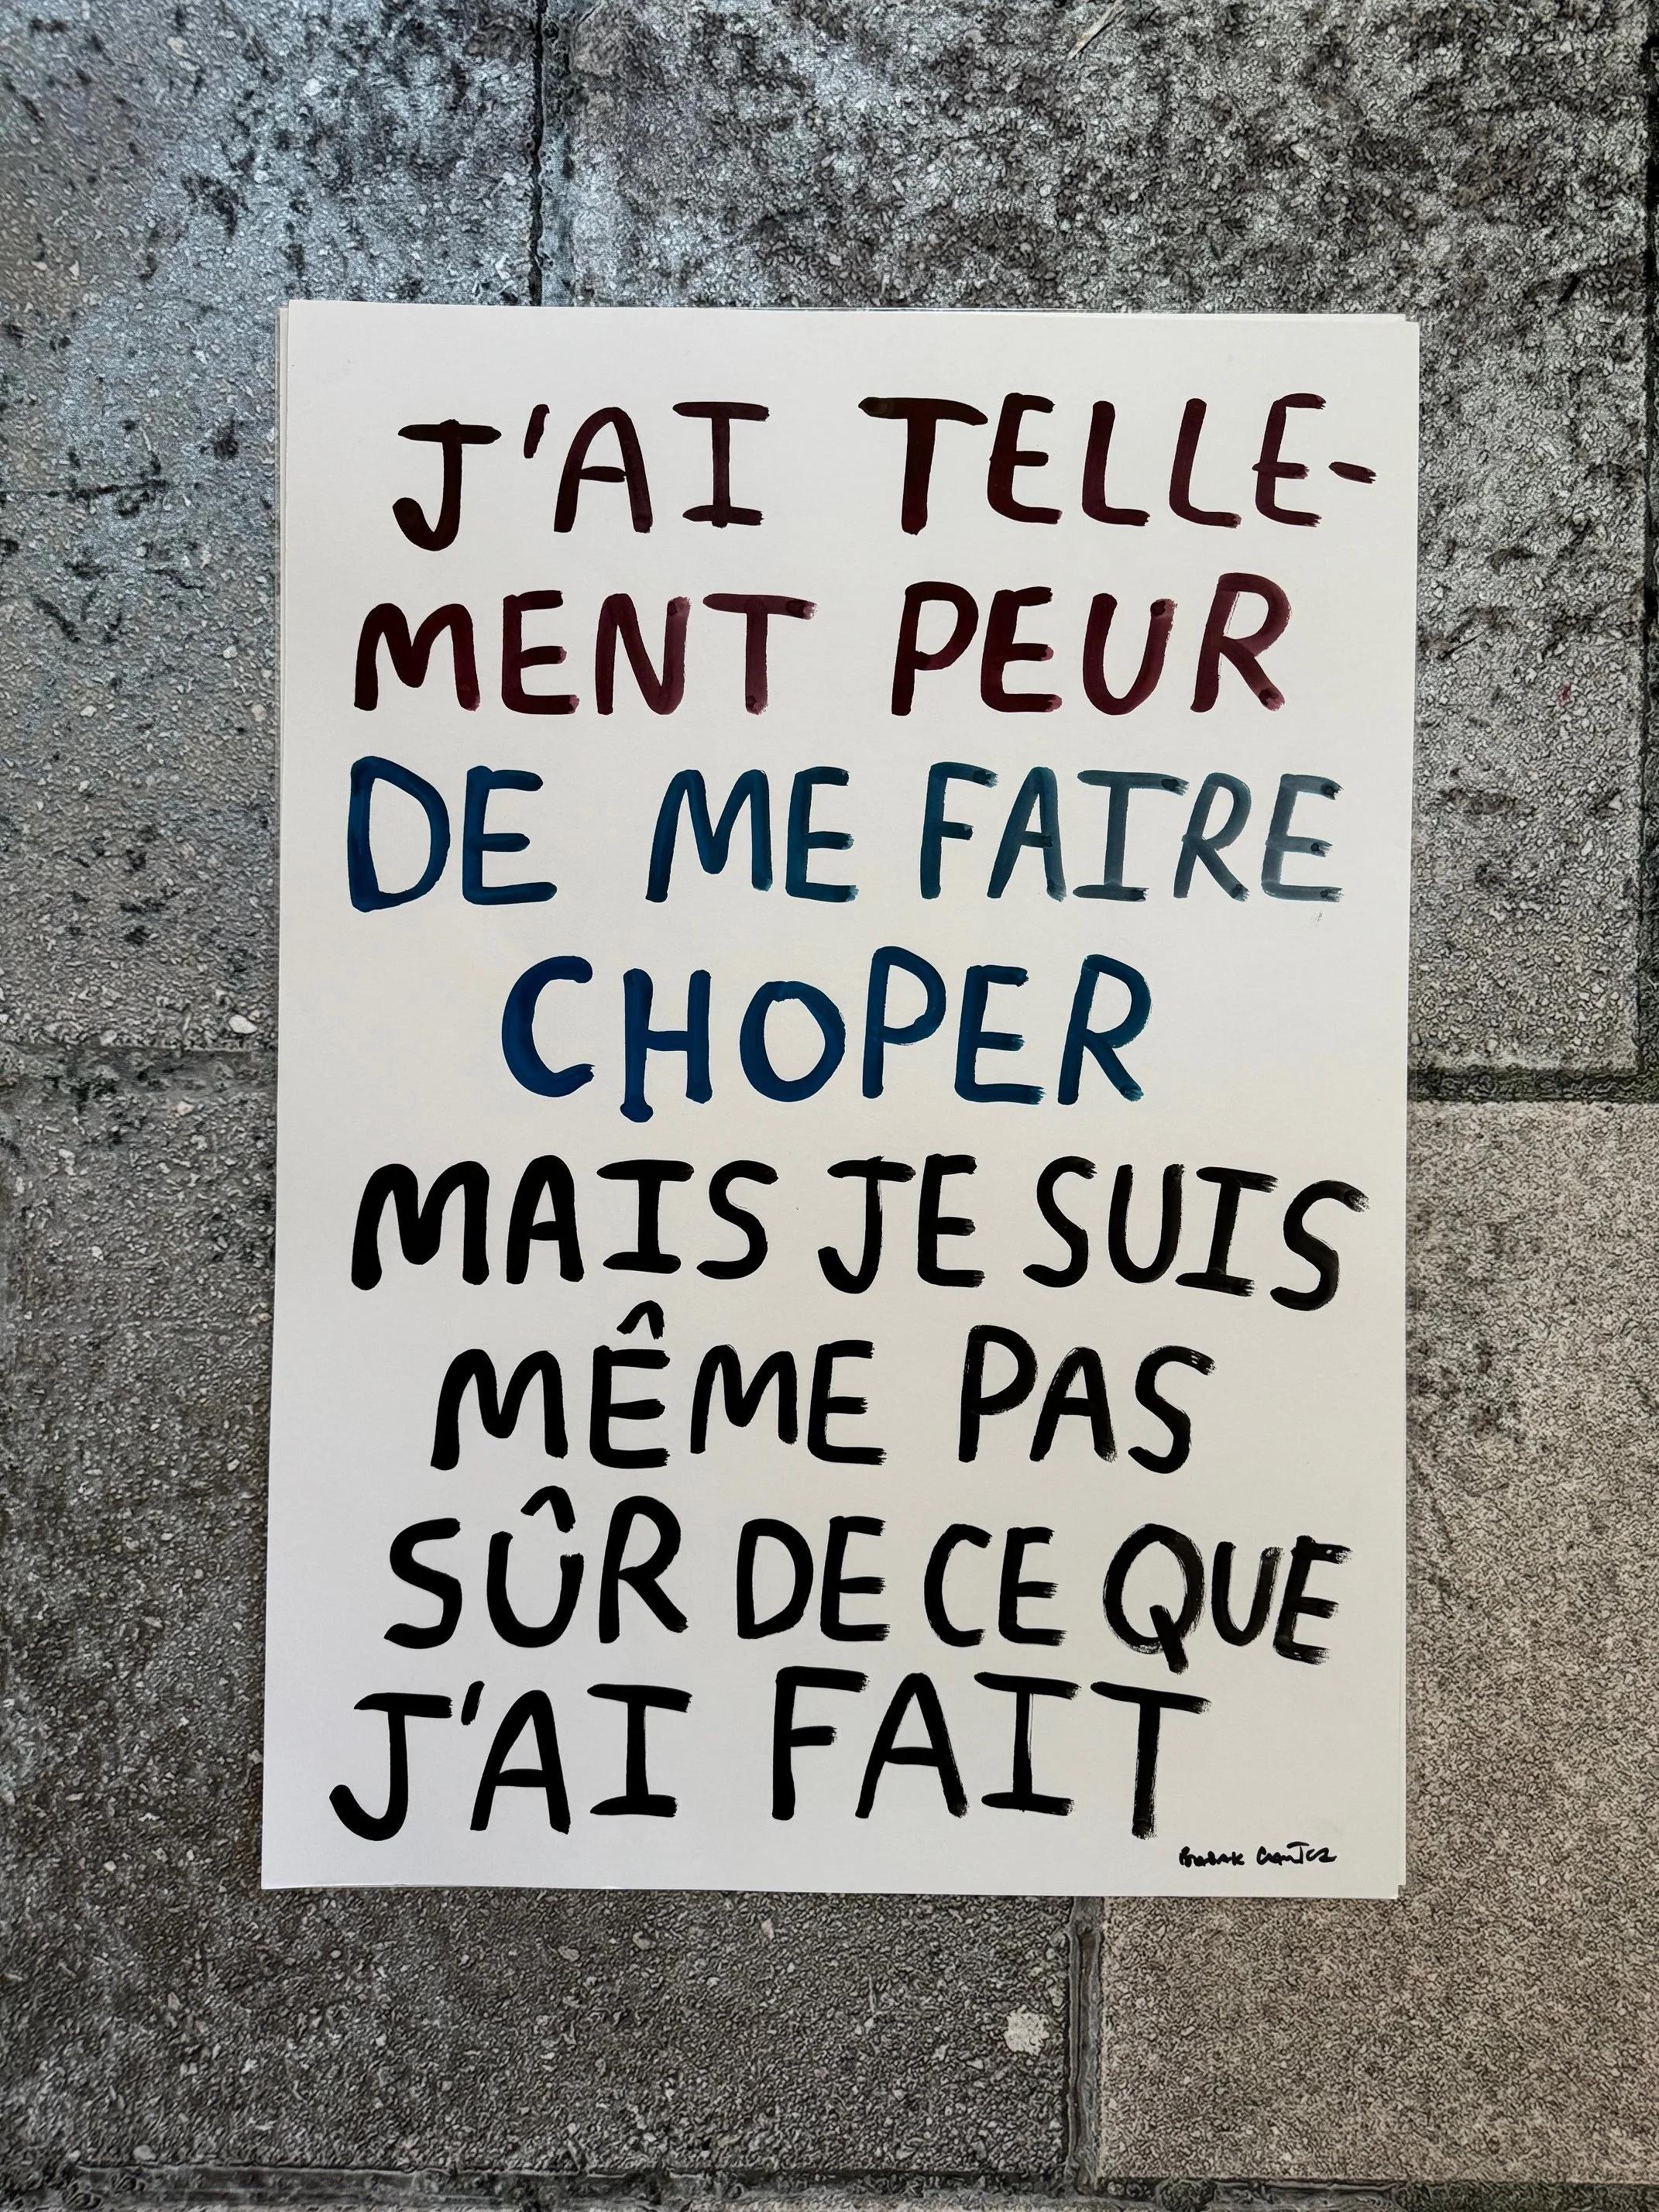 J'AI TELLE-
MENT PEUR
DE ME FAIRE
CHOPER
MAIS JE SUIS
MÊME PAS
SÛR DE CE QUE
J'AI FAIT